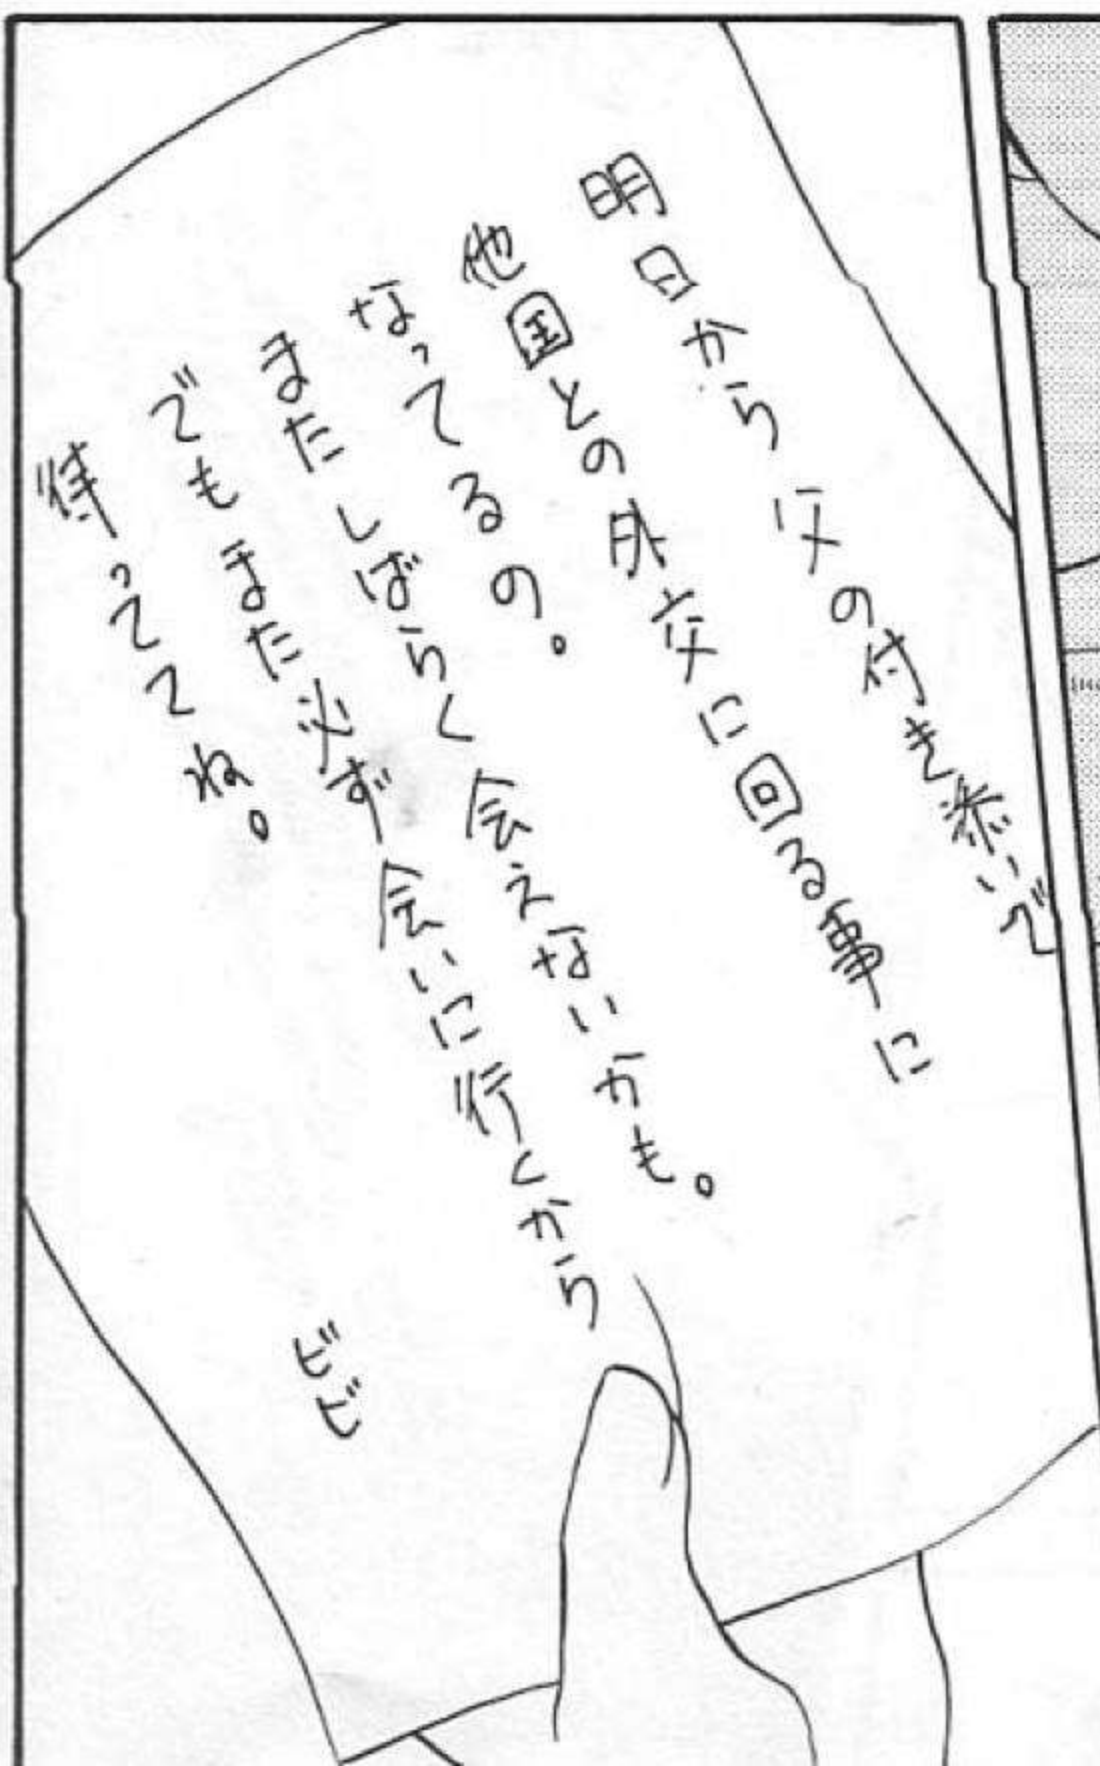 明日から父の付き添いで
他国との外交に回る事に
なってるの。
まだしばらく会えないかも。
でもまた必ず会いに行くから
待っててね。
ビビ